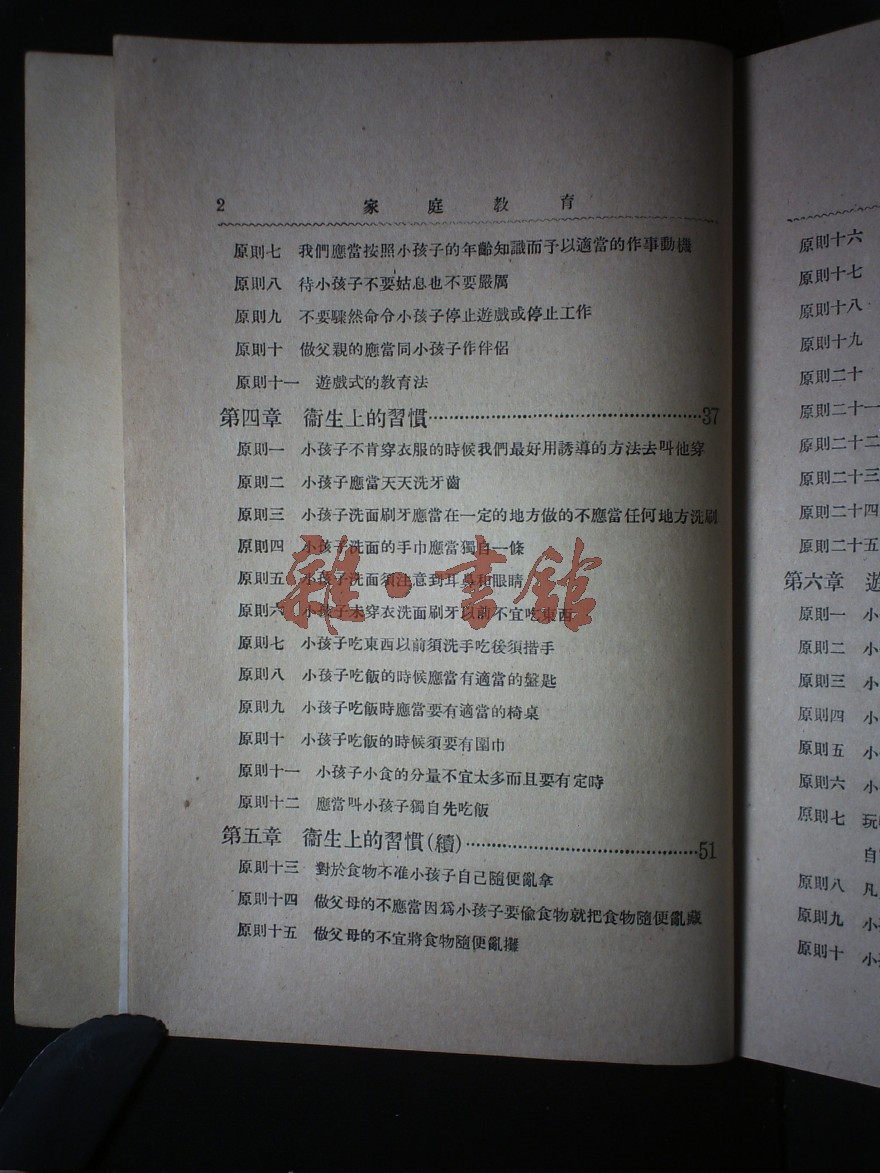 2 家庭教育
原則七 我們應當按照小孩子的年齡知識而予以適當的作事動機
原則八 待小孩子不要姑息也不要嚴厲
原則九 不要驟然命令小孩子停止遊戲或停止工作
原則十 做父親的應當同小孩子作伴侶
原則十一 遊戲式的教育法
第四章 衞生上的習慣……37
原則一 小孩子不肯穿衣服的時候我們最好用誘導的方法去叫他穿
原則二 小孩子應當天天洗牙齒
原則三 小孩子洗面刷牙應當在一定的地方做的不應當任何地方洗刷
原則四 小孩子洗面的手巾應當獨自一條
原則五 小孩子洗面須注意到耳鼻和眼睛
原則六 小孩子未穿衣洗面刷牙以前不宜吃東西
原則七 小孩子吃東西以前須洗手吃後須揩手
原則八 小孩子吃飯的時候應當有適當的盤匙
原則九 小孩子吃飯時應當要有適當的椅桌
原則十 小孩子吃飯的時候須要有圍巾
原則十一 小孩子小食的分量不宜太多而且要有定時
原則十二 應當叫小孩子獨自先吃飯
第五章 衞生上的習慣(續)……51
原則十三 對於食物不准小孩子自己隨便亂拿
原則十四 做父母的不應當因爲小孩子要偸食物就把食物隨便亂藏
原則十五 做父母的不宜將食物隨便亂攤
雜·書館
原則十六
原則十七
原則十八
原則十九
原則二十
原則二十一
原則二十二
原則二十三
原則二十四
原則二十五
第六章 遊
原則一 小
原則二 小
原則三 小
原則四 小
原則五 小
原則六 小
原則七 玩
自
原則八 凡
原則九 小
原則十 小